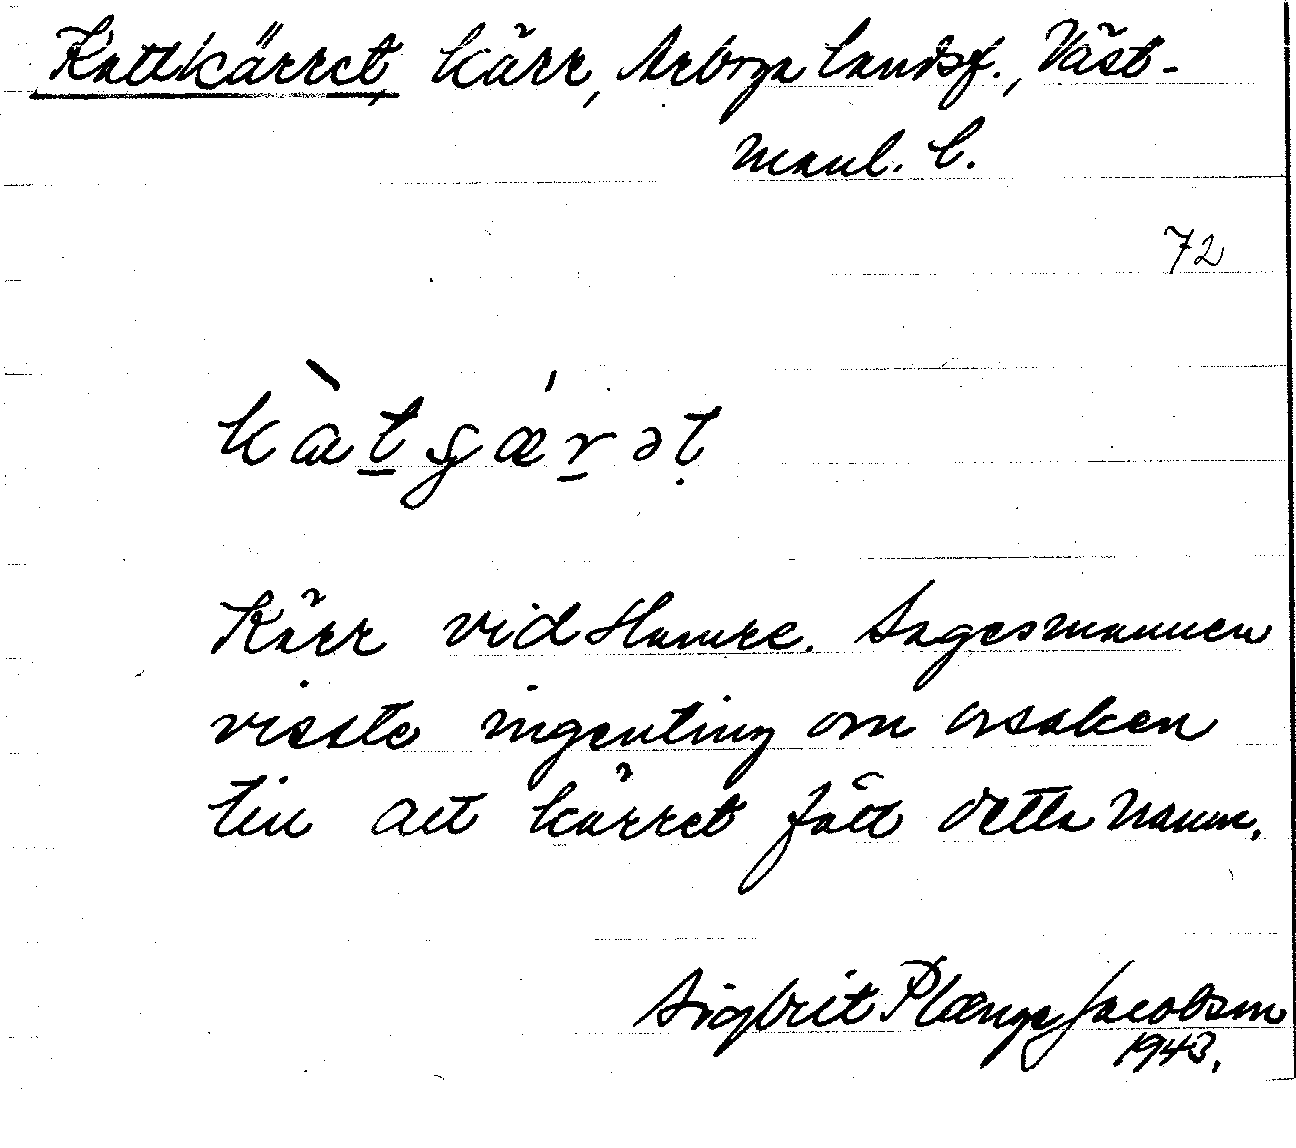 Kattkärret, kärr, Arboga landsf., Väst-
manl. l.
72
Kärr vid Hamre. Sagesmannen
visste ingenting om orsaken
till att kärret fått detta namn.
Sigbrit Plænge Jacobson
1943.